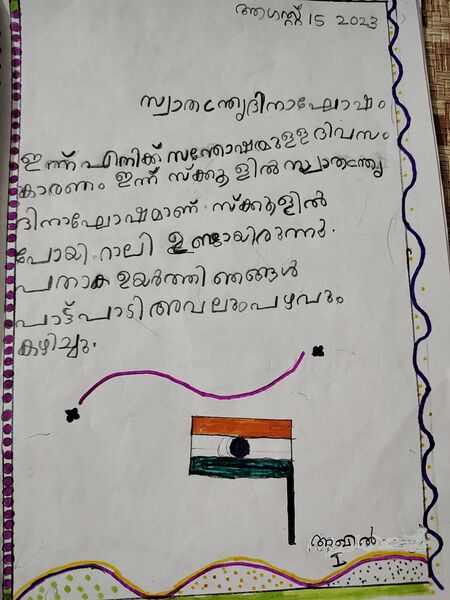 ആഗസ്റ്റ് 15 2023
സ്വാതന്ത്ര്യദിനാഘോഷം
ഇന്ന് എനിക്ക് സന്തോഷമുള്ള ദിവസം
കാരണം ഇന്ന് സ്ക്കൂളിൽ സ്വാതന്ത്ര്യ
ദിനാഘോഷമാണ്. സ്ക്കൂളിൽ
പോയി. റാലി ഉണ്ടായിരുന്നു.
പതാക ഉയർത്തി ഞങ്ങൾ
പാട്ട് പാടി അവലും പഴവും
കഴിച്ചു.
അഖിൽ
I